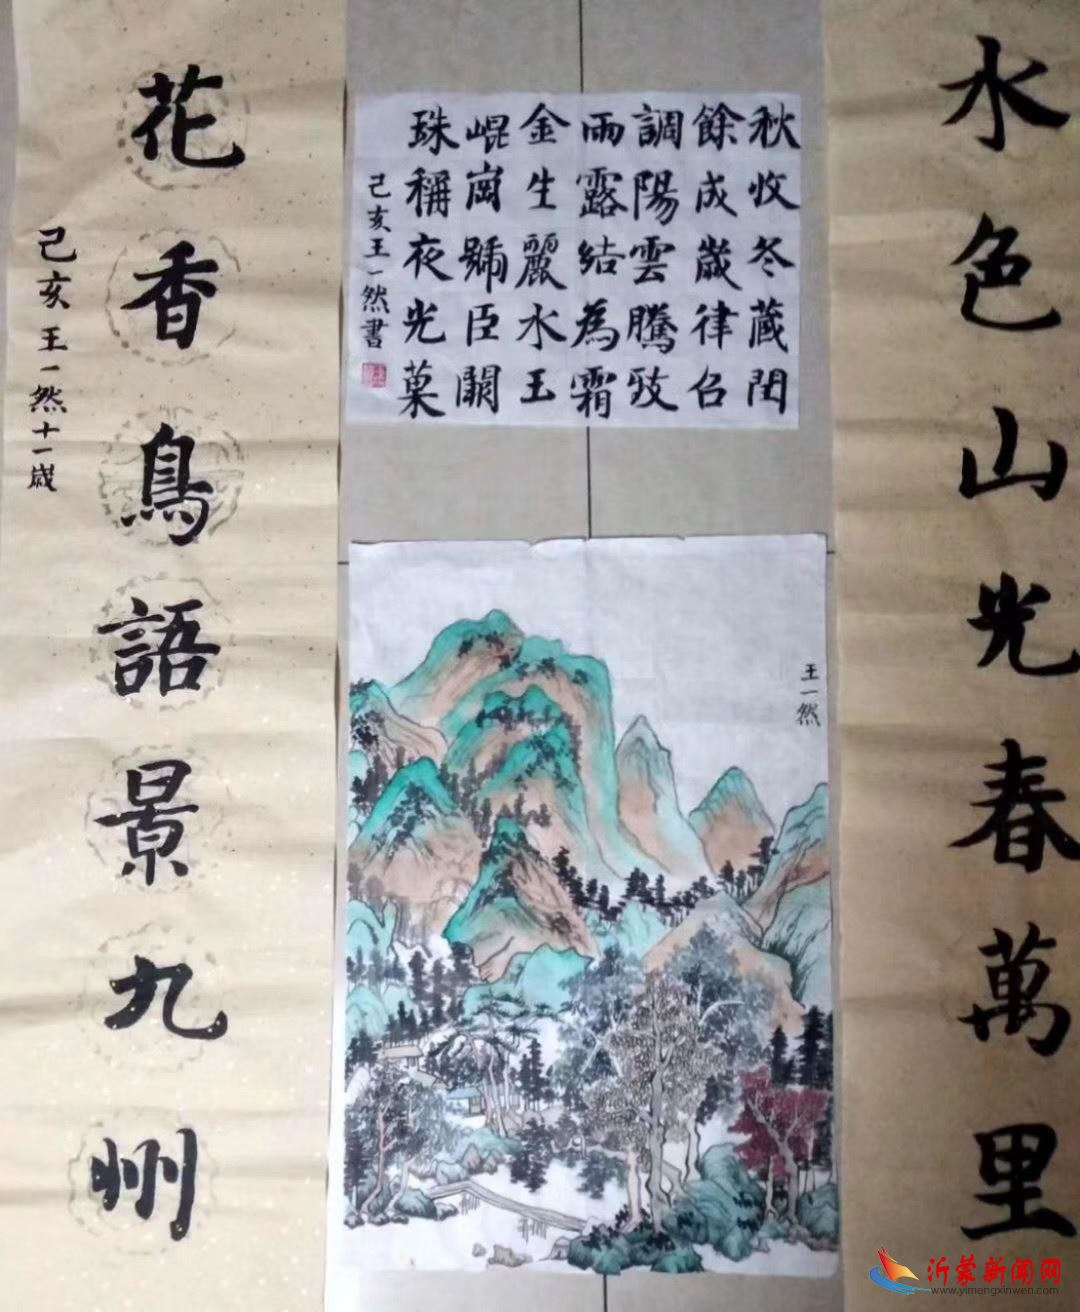 水色山光春萬里
秋收冬藏閏
餘成歲律召
調陽雲騰致
雨露結為霜
金生麗水玉
崐崗號臣闕
珠稱夜光菓
己亥王一然書
王一然
花香鳥語景九州
己亥王一然十一歲
沂蒙新闻网
www.yimengxinwen.com